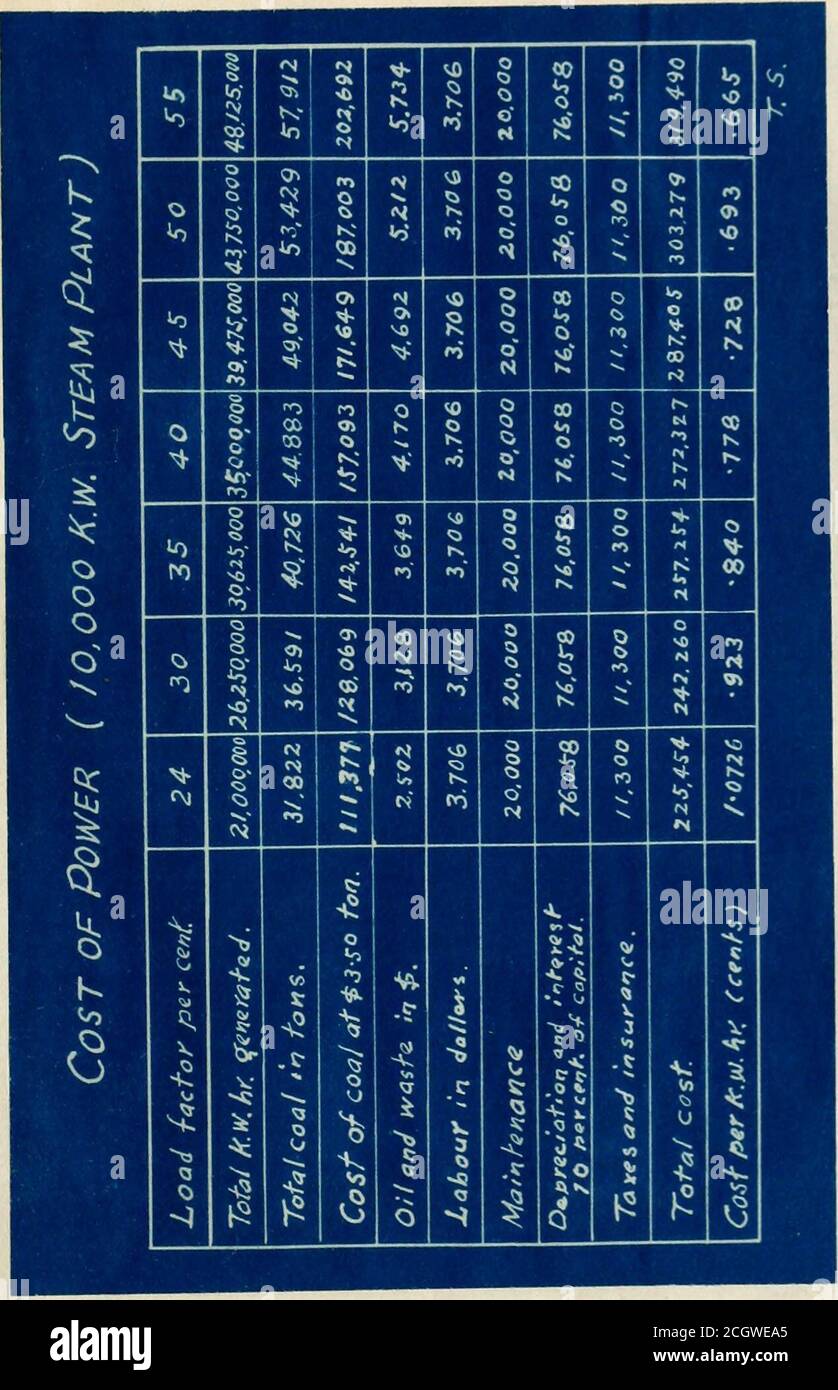 COST OF POWER ( 10,000 K.W. STEAM PLANT )
Load factor per cent. 24 30 35 40 45 50 55
Total K.W. hr. generated. 21,000,000 26,250,000 30,625,000 35,000,000 39,475,000 43,750,000 48,125,000
Total coal in tons. 31.822 36,591 40,726 44.883 49,042 53,429 57,912
Cost of coal at $3.50 ton. 111,377 128,069 142,541 157,093 171,649 187,003 202,692
Oil and waste in $. 2,502 3,128 3,649 4,170 4,692 5,212 5,734
Labour in dollars. 3.706 3,706 3,706 3.706 3.706 3,706 3,706
Maintenance 20,000 20,000 20,000 20,000 20,000 20,000 20,000
Depreciation and interest
10 per cent. of capital. 76,058 76,058 76,058 76,058 76,058 76,058 76,058
Taxes and insurance. 11,300 11,300 11,300 11,300 11,300 11,300 11,300
Total cost. 225,454 242,260 257,254 272,327 287,405 303,279 319,490
Cost per K.W. hr. (cents) 1.0726 .923 .840 .778 .728 .693 .665
T. S.
alamy
Image ID: 2CGWEA5
www.alamy.com